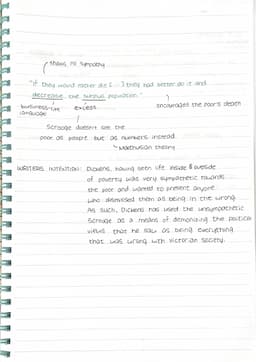 shows no sympathy
"if they would rather die [...] they had better do it and
decrease the surplus population."
business-like language
excess
encourages the poor's death
Scrooge doesn't see the
poor as people but as numbers instead
Malthusian theory
WRITERS INTENTION: Dickens, having seen life inside & outside
of poverty was very sympathetic towards
the poor and wanted to present anyone
who dismissed them as being in the wrong.
As such, Dickens has used the unsympathetic
Scrooge as a means of demonising the political
views that he saw as being everything
that was wrong with Victorian Society.